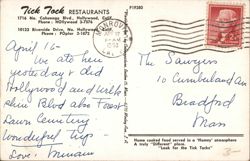 Tick Tock RESTAURANTS
1716 No. Cahuenga Blvd., Hollywood, Calif.
Phone: HOllywood 3-7576
10123 Riverside Drive, No. Hollywood, Calif.
Phone: POplar 2-1672
P19280
April 16-
We ate here
yesterday & did
Hollywood and
also Forest
Lawn Cemetery.
Wonderful trip -
Love,
The Sawyers
10 Cumberland Ave
Bradford
Mass
Home cooked food served in a "Homey" atmosphere
A truly "Different" place.
"Look for the Tick Tocks"